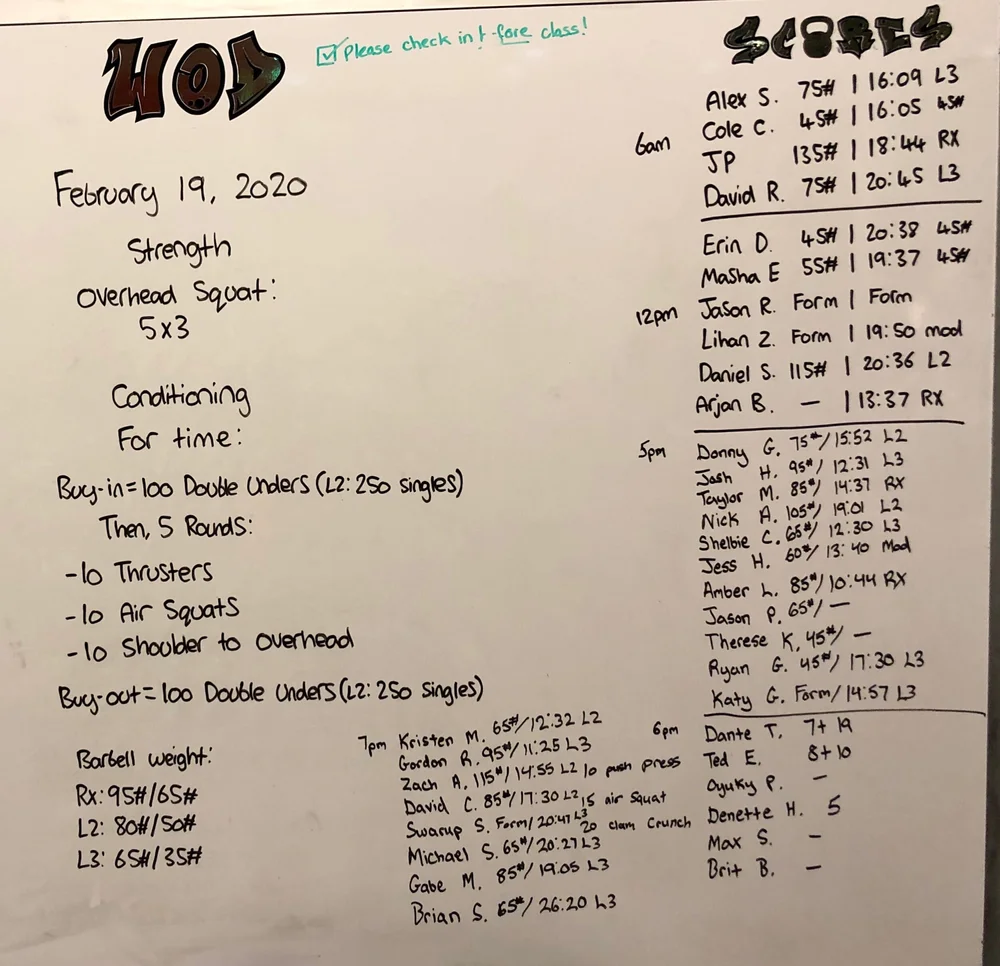 WOD
☑ Please check in before class!
February 19, 2020
Strength
Overhead Squat:
5x3
Conditioning
For time:
Buy-in=100 Double Unders (L2: 250 singles)
Then, 5 Rounds:
-10 Thrusters
-10 Air Squats
-10 Shoulder to overhead
Buy-out=100 Double Unders (L2: 250 Singles)
Barbell weight:
Rx: 95#/65#
L2: 80#/50#
L3: 65#/35#
SCORES
6am
Alex S. 75# | 16:09 L3
Cole C. 45# | 16:05 45#
JP 135# | 18:44 RX
David R. 75# | 20:45 L3
12pm
Erin D. 45# | 20:38 45#
Masha E 55# | 19:37 45#
Jason R. Form | Form
Lihan Z. Form | 19:50 mod
Daniel S. 115# | 20:36 L2
Arjan B. — | 13:37 RX
5pm
Donny G. 75#/15:52 L2
Josh H. 95#/ 12:31 L3
Taylor M. 85#/ 14:37 RX
Nick A. 105#/ 19:01 L2
Shelbie C. 65#/ 12:30 L3
Jess H. 60#/ 13:40 Mod
Amber L. 85#/10:44 RX
Jason P. 65#/ —
Therese K, 45#/ —
Ryan G. 45#/ 17:30 L3
Katy G. Form/14:57 L3
6pm
Dante T. 7+ 19
Ted E. 8+10
Oyuky P. —
Denette H. 5
Max S. —
Brit B. —
10 push press
15 air squat
20 clam crunch
7pm
Kristen M. 65#/12:32 L2
Gordon R. 95#/ 11:25 L3
Zach A. 115#/ 14:55 L2
David C. 85#/ 17:30 L2
Swarup S. Form/ 20:47 L3
Michael S. 65#/20:27 L3
Gabe M. 85#/ 19:05 L3
Brian S. 65#/ 26:20 L3